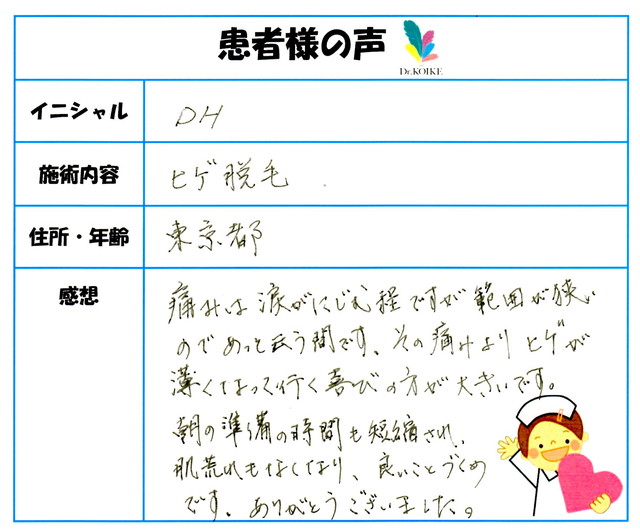 患者様の声
Dr.KOIKE
イニシャル
DH
施術内容
ヒゲ脱毛
住所・年齢
東京都
感想
痛みは涙がにじむ程ですが範囲が狭い
のであっと云う間です、その痛みよりヒゲが
薄くなって行く喜びの方が大きいです。
朝の準備の時間も短縮され、
肌荒れもなくなり、良いことづくめ
です。ありがとうございました。